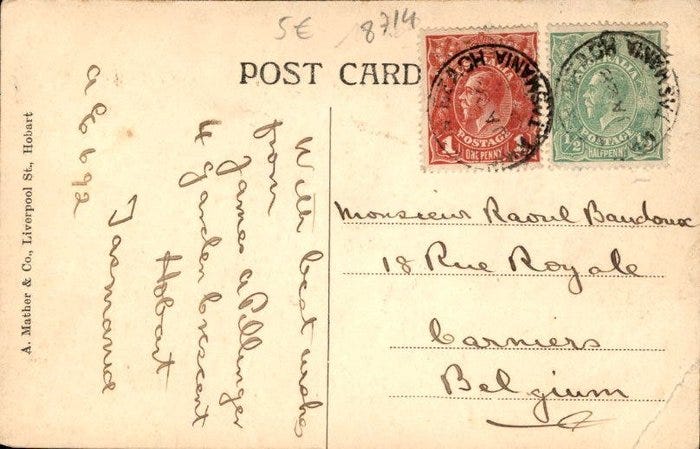 5€ 8714
POST CARD
AUSTRALIA
POSTAGE
1
ONE PENNY
AUSTRALIA
POSTAGE
½
HALFPENNY
TASMANIA
TASMANIA
With best wishes
from
James A Pillinger
4 Garden Crescent
Hobart
Tasmania
A E 692
A. Mather & Co., Liverpool St., Hobart
Monsieur Raoul Baudoux
18 Rue Royale
Carniers
Belgium